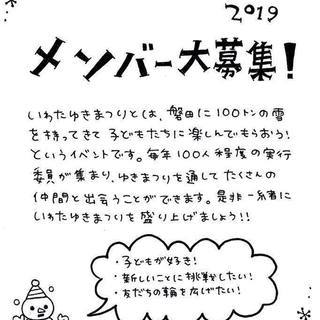 2019
メンバー大募集!
いわたゆきまつりとは、磐田に100トンの雪
を持ってきて子どもたちに楽しんでもらおう!
というイベントです。毎年100人程度の実行
委員が集まり、ゆきまつりを通してたくさんの
仲間と出会うことができます。是非一緒に
いわたゆきまつりを盛り上げましょう!!
・子どもが好き!
・新しいことに挑戦したい!
・友だちの輪を広げたい!